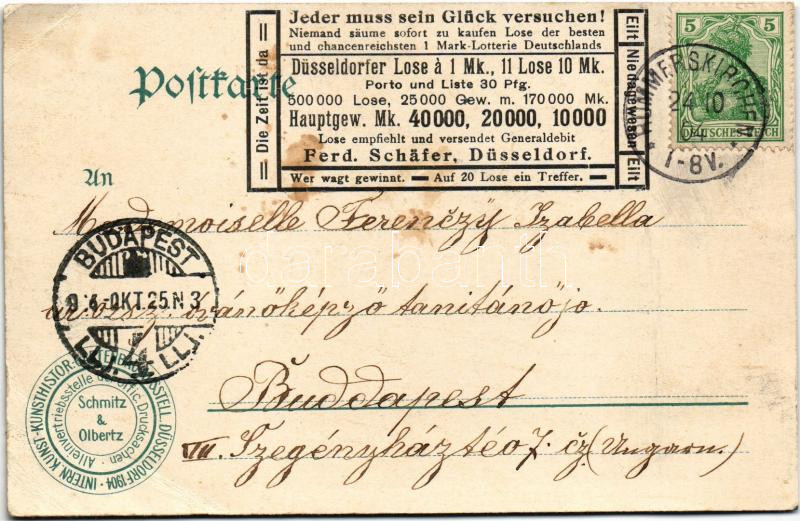 Jeder muss sein Glück versuchen!
Niemand säume sofort zu kaufen Lose der besten
und chancenreichsten 1 Mark-Lotterie Deutschlands
Düsseldorfer Lose à 1 Mk., 11 Lose 10 Mk.
Porto und Liste 30 Pfg.
500 000 Lose, 25 000 Gew. m. 170 000 Mk.
Hauptgew. Mk. 40000, 20000, 10000
Lose empfiehlt und versendet Generaldebit
Ferd. Schäfer, Düsseldorf.
Wer wagt gewinnt. — Auf 20 Lose ein Treffer.
Die Zeit ist da
Eilt Nie dagewesen Eilt
5 5
DEUTSCHES REICH
ROMMERSKIRCHEN
24 10
4
7-8V.
Postkarte
An
Mademoiselle Ferenczy Izabella
óvónőképző tanitánőjo.
Buddapest
VII. Szegényháztéo 7. sz (Ungarn.)
BUDAPEST
OKT. 25. N 3
darabanth
INTERN. KUNST-KUNSTHISTOR. AUSSTELL. DÜSSELDORF 1904
Alleinvertriebsstelle der offic. Drucksachen
Schmitz
&
Olbertz